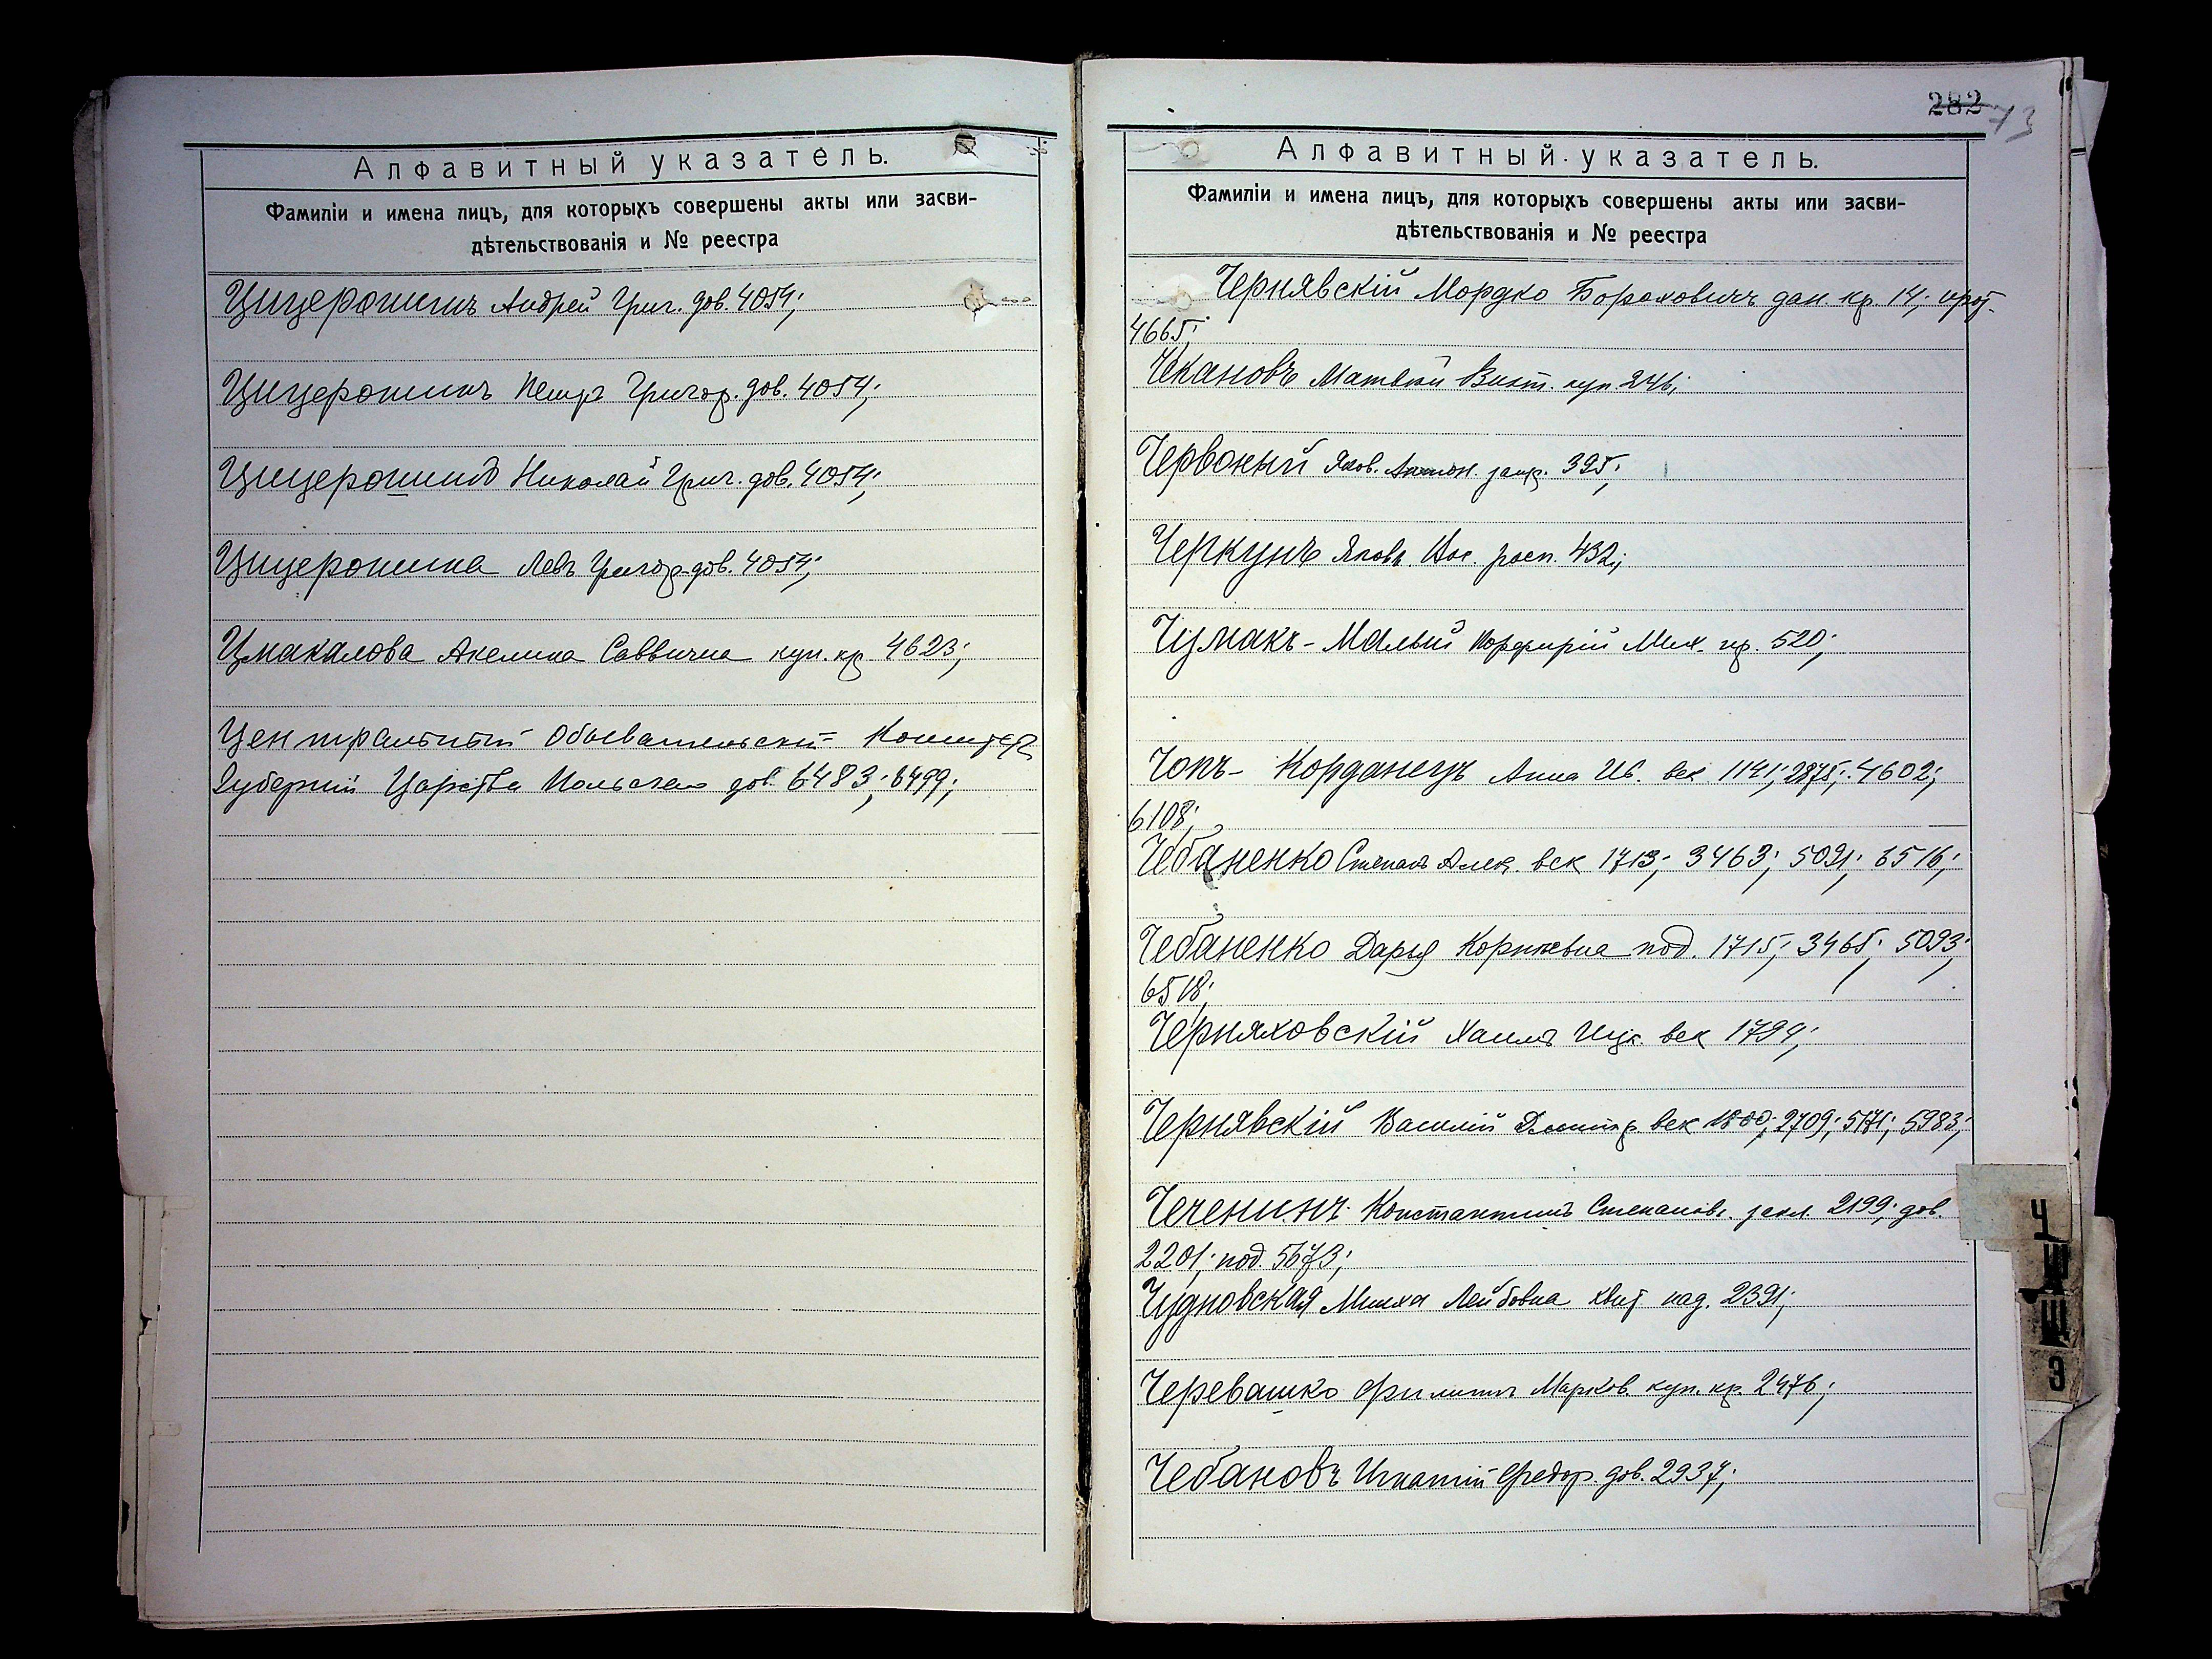 Алфавитный указатель.
Фамиліи и имена лицъ, для которыхъ совершены акты или засви-
дѣтельствованія и № реестра
Цицеропинъ Андрей Григ. дов. 4054;
Цицеропинъ Петръ Григор. дов. 4054;
Цицеропинъ Николай Григ. дов. 4054;
Цицеропина Левъ Григор. дов. 4054;
Цмакалова Акелина Саввична куп. кр. 4623;
Центральный Обывательскій Комитетъ
Губерній Царства Польскаго дов. 6483; 6499;
282 73
Алфавитный указатель.
Фамиліи и имена лицъ, для которыхъ совершены акты или засви-
дѣтельствованія и № реестра
Чернявскій Мордко Бороховичъ дан. кр. 14; прот.
4665;
Чекановъ Матвѣй Викт. куп 246;
Червоный Яков. Антон. 395;
Черкунъ Яковъ Вас. росп. 432;
Чумакъ-Малый Порфирій Мих. кр. 520;
Чопъ- Корданецъ Анна Ив. век 1141; 2875; 4602;
6108;
Чебаненко Степанъ Алек. век 1713; 3463; 5091; 6516;
Чебаненко Дарья Корнѣевна под. 1715; 3465; 5093;
6518;
Черняховскій Хаимъ Ицк. век 1794;
Чернявскій Василій Дмитр. век 1800; 2709; 5171; 5983;
Чеченинъ Константинъ Степанов. закл. 2199; дов.
2201; под. 5673;
Чудновская Лейбовна над. 2391;
Черевашко Филиппъ Марков. куп. кр. 2476;
Чебановъ Игнатій Федор. дов. 2937;
Ч
Ш
Щ
Э